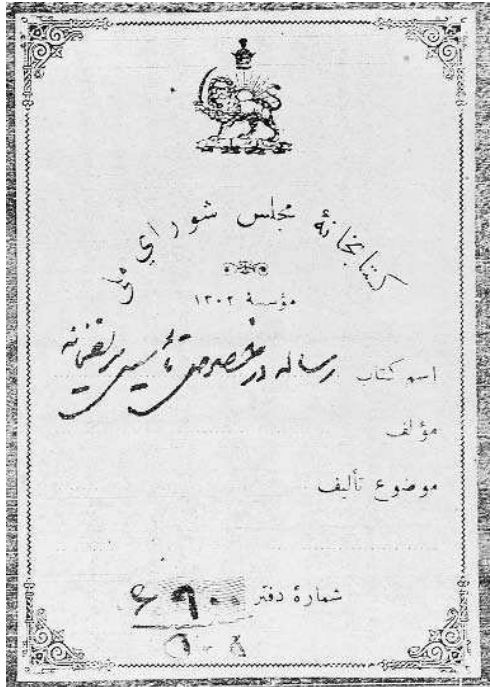 کتابخانهٔ مجلس شورای ملی
مؤسسهٔ ۱۳۰۲
اسم کتاب رساله در خصوص تأسیس مریضخانه
مؤلف
موضوع تألیف
شمارهٔ دفتر ۶۹۰۰